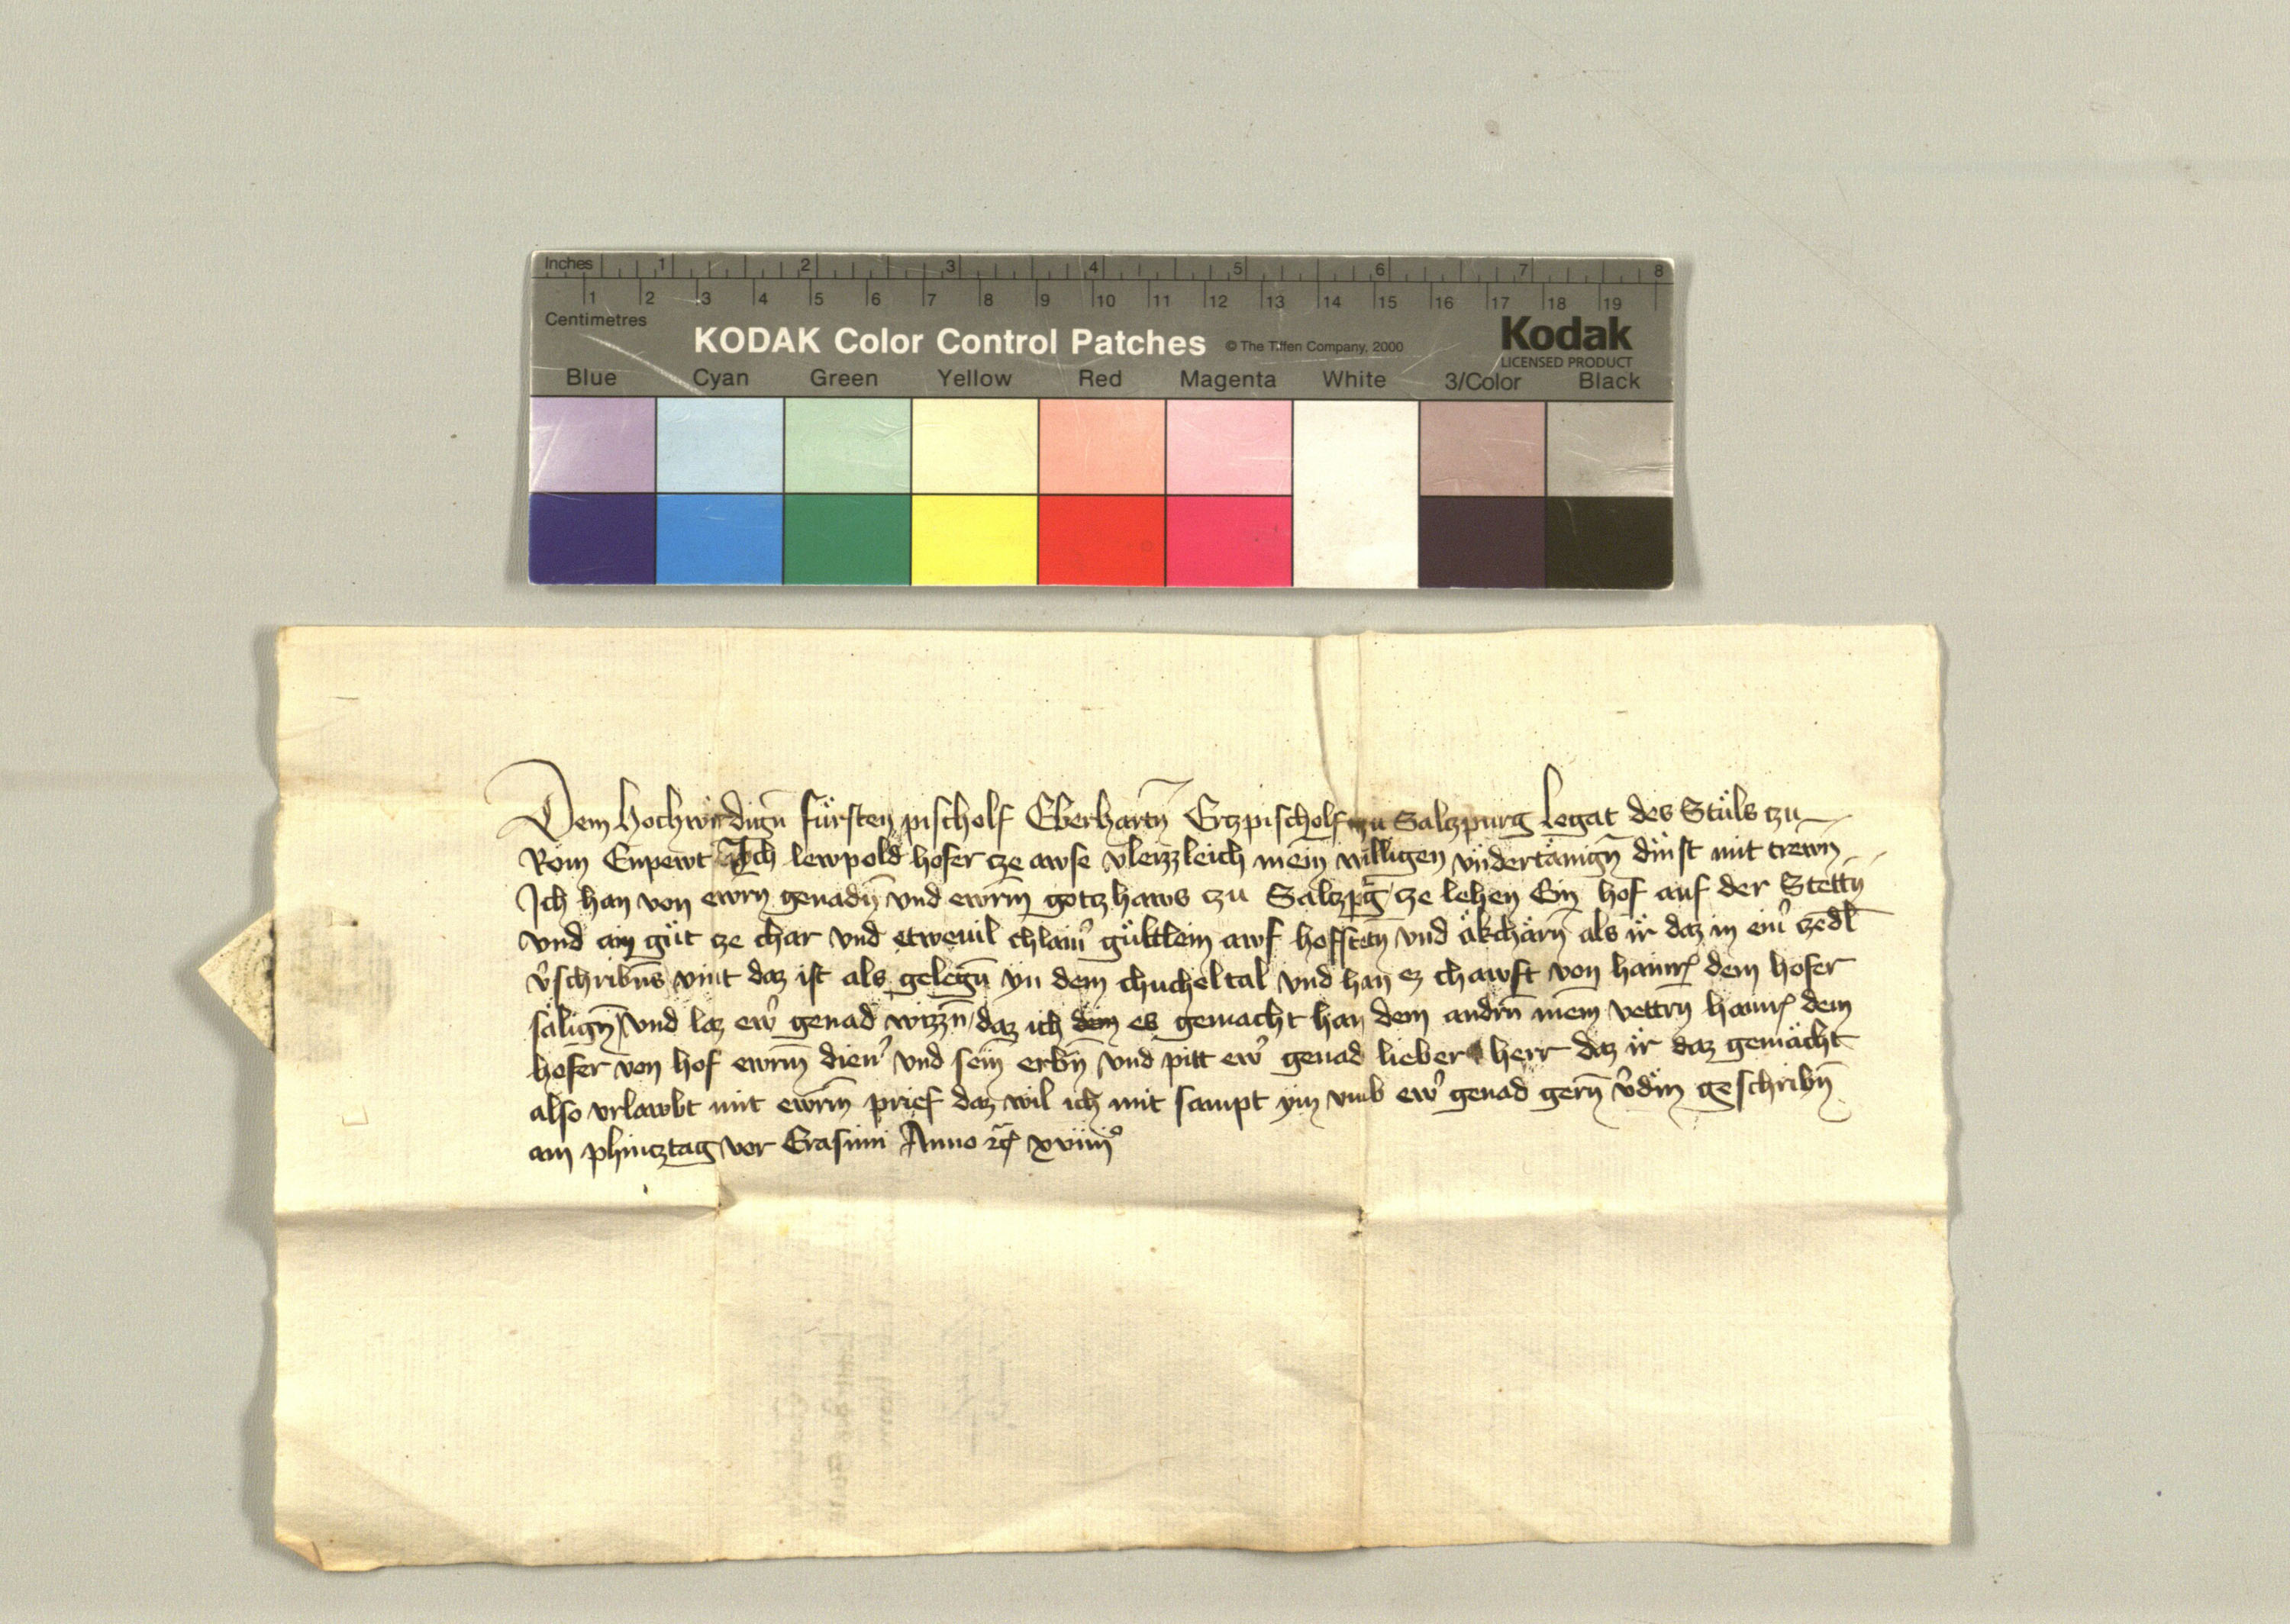 Inches 1 2 3 4 5 6 7 8
1 2 3 4 5 6 7 8 9 10 11 12 13 14 15 16 17 18 19
Centimetres
KODAK Color Control Patches © The Tiffen Company, 2000 Kodak
LICENSED PRODUCT
Blue Cyan Green Yellow Red Magenta White 3/Color Black
Dem hochwirdign̄ fürsten pischolf Eberhartn̄ Erczpischolf zu Salczpurg Legat des Stůls czu
Rom Enpewt Ich lewpold hofer cze awse vleizzleich mein̄ willigen vndertänign̄ dinst mit trewn
Ich han von ewrn genadn̄ vnd ewrm̄ gotzhaws czu Salczpḡ cze lehen Ein hof auf der Stettn̄
vnd ain gůt cze char vnd etweuil chlain̄ gütlein awf hofstetn̄ vnd äkchärn̄ als ir daz in ein̉ czedl̄
v̉schribns vint daz ist als gelegn̄ yn dem chucheltal vnd han ez chawft von hainr̄ dem hofer
sälign̄ vnd laz ew̉ genad wizzn̄ daz ich dem es gemacht han dem andrn̄ mein vettrn̄ hainr̄ dem
hofer von hof ewrm̄ dien̉ vnd sein̄ erbn̄ vnd pitt ew̉ genad lieber herr daz ir daz gemächt
also vrlawbt mit ewrm̄ prief daz wil ich mit sampt ym vmb ew̉ genad gern̄ v̉din geschribn̄
am phincztag vor Erasimi Anno xviiii°